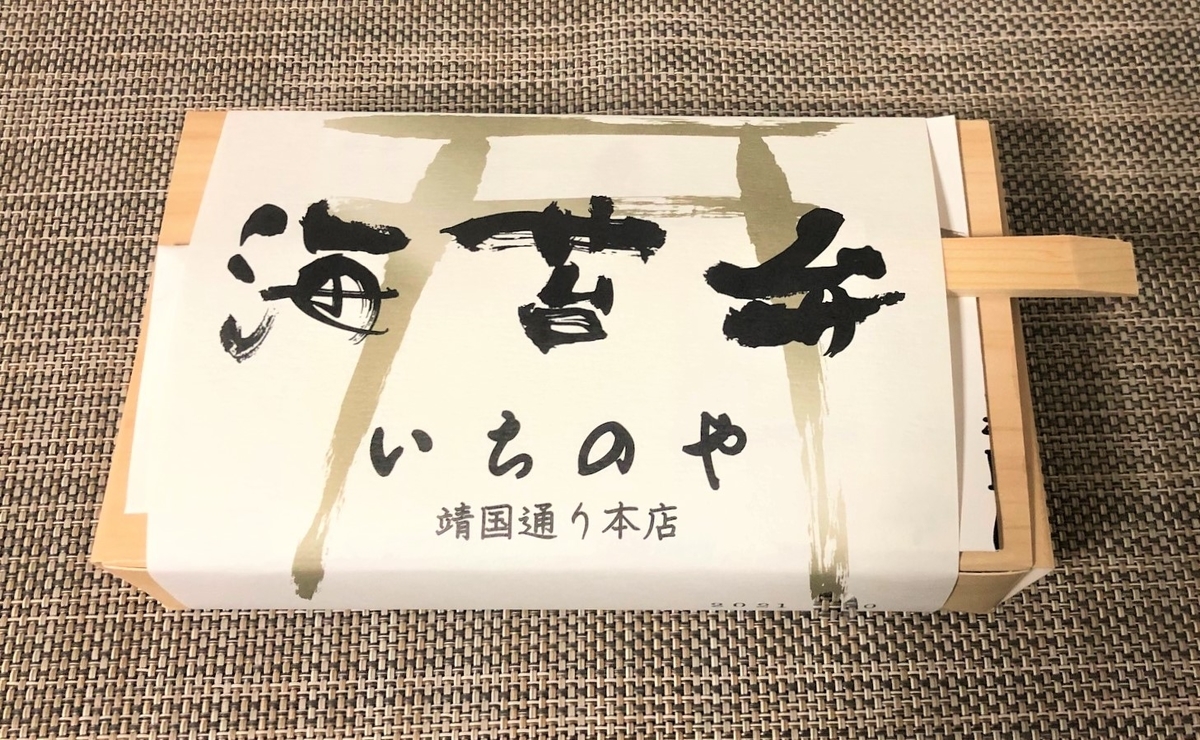 海苔弁
いちのや
靖国通り本店
2021